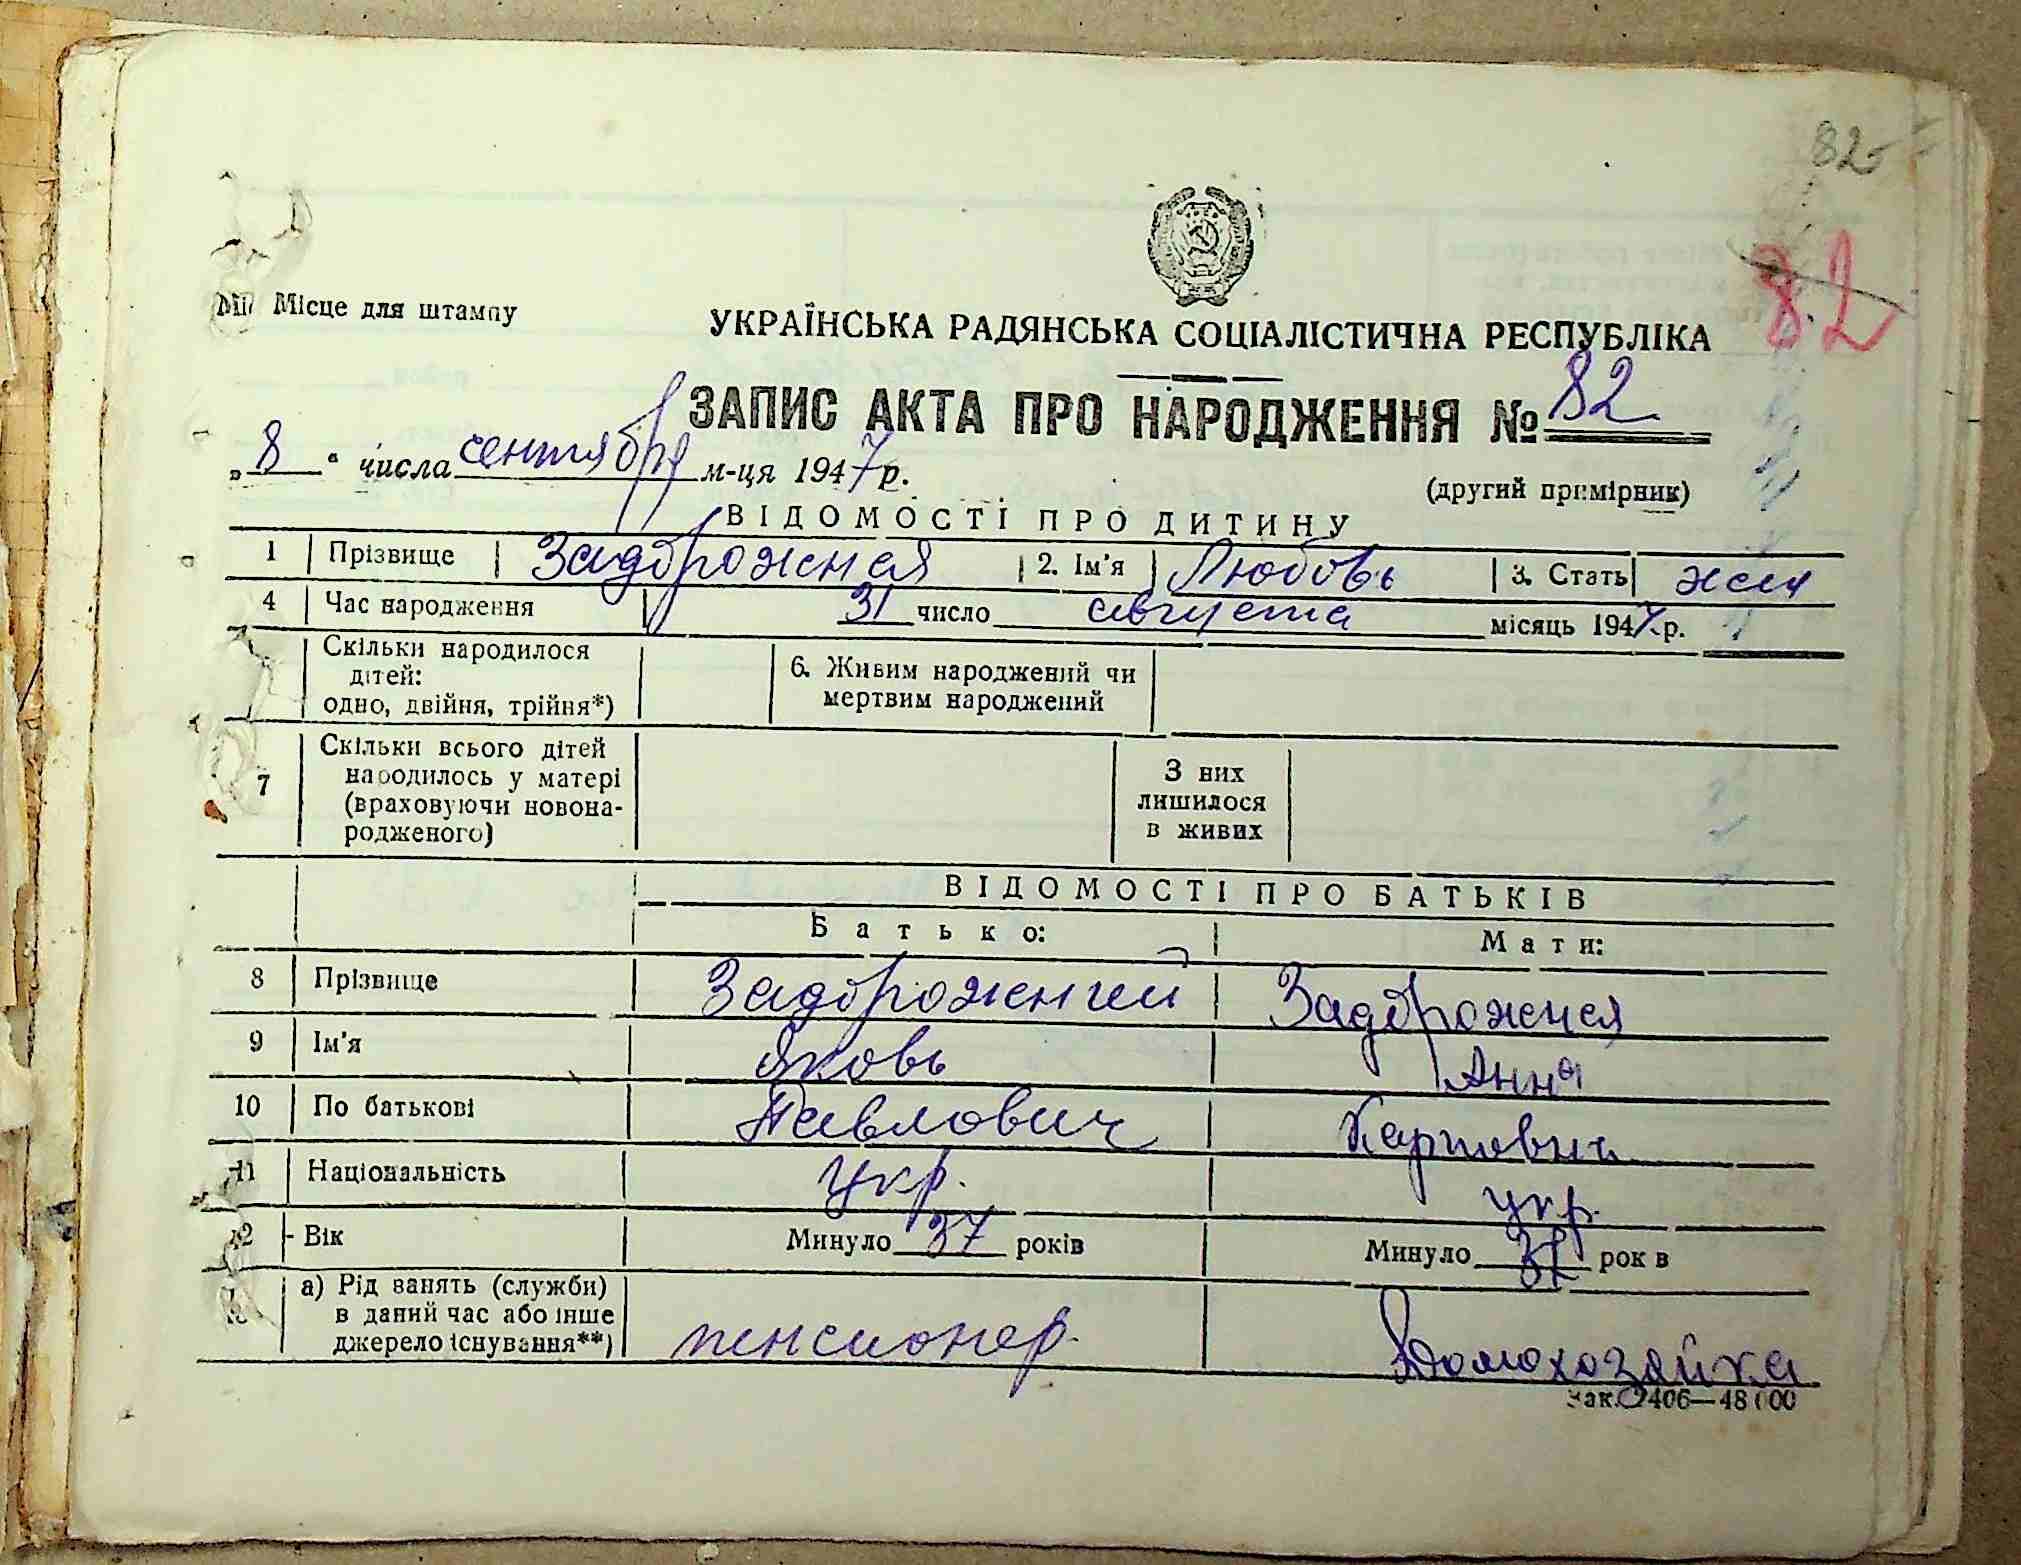 82
82
Місце для штампу
УКРАЇНСЬКА РАДЯНСЬКА СОЦІАЛІСТИЧНА РЕСПУБЛІКА
ЗАПИС АКТА ПРО НАРОДЖЕННЯ № 82
„8“ числа сентября м-ця 1947 р.
(другий примірник)
ВІДОМОСТІ ПРО ДИТИНУ
1 Прізвище Задорожная 2. Ім'я Любовь 3. Стать жен
4 Час народження 31 число августа місяць 1947 р.
Скільки народилося дітей: одно, двійня, трійня*) 6. Живим народжений чи мертвим народжений
7 Скільки всього дітей народилось у матері (враховуючи новонародженого) З них лишилося в живих
ВІДОМОСТІ ПРО БАТЬКІВ
Батько: Мати:
8 Прізвище Задорожний Задорожная
9 Ім'я Яковь Анна
10 По батькові Павлович Карповна
11 Національність укр. укр.
12 Вік Минуло 37 років Минуло рок в
а) Рід занять (служби) в даний час або інше джерело існування**) пенсионер. Домохозяйка
Зак. 2406—48000